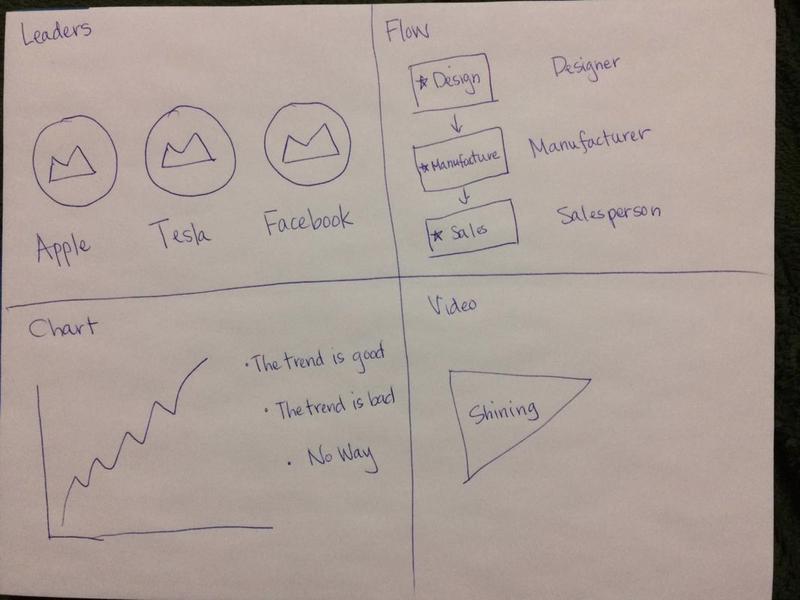 Leaders
Apple
Tesla
Facebook
Flow
* Design
Designer
* Manufacture
Manufacturer
* Sales
Salesperson
Chart
• The trend is good
• The trend is bad
• No Way
Video
Shining